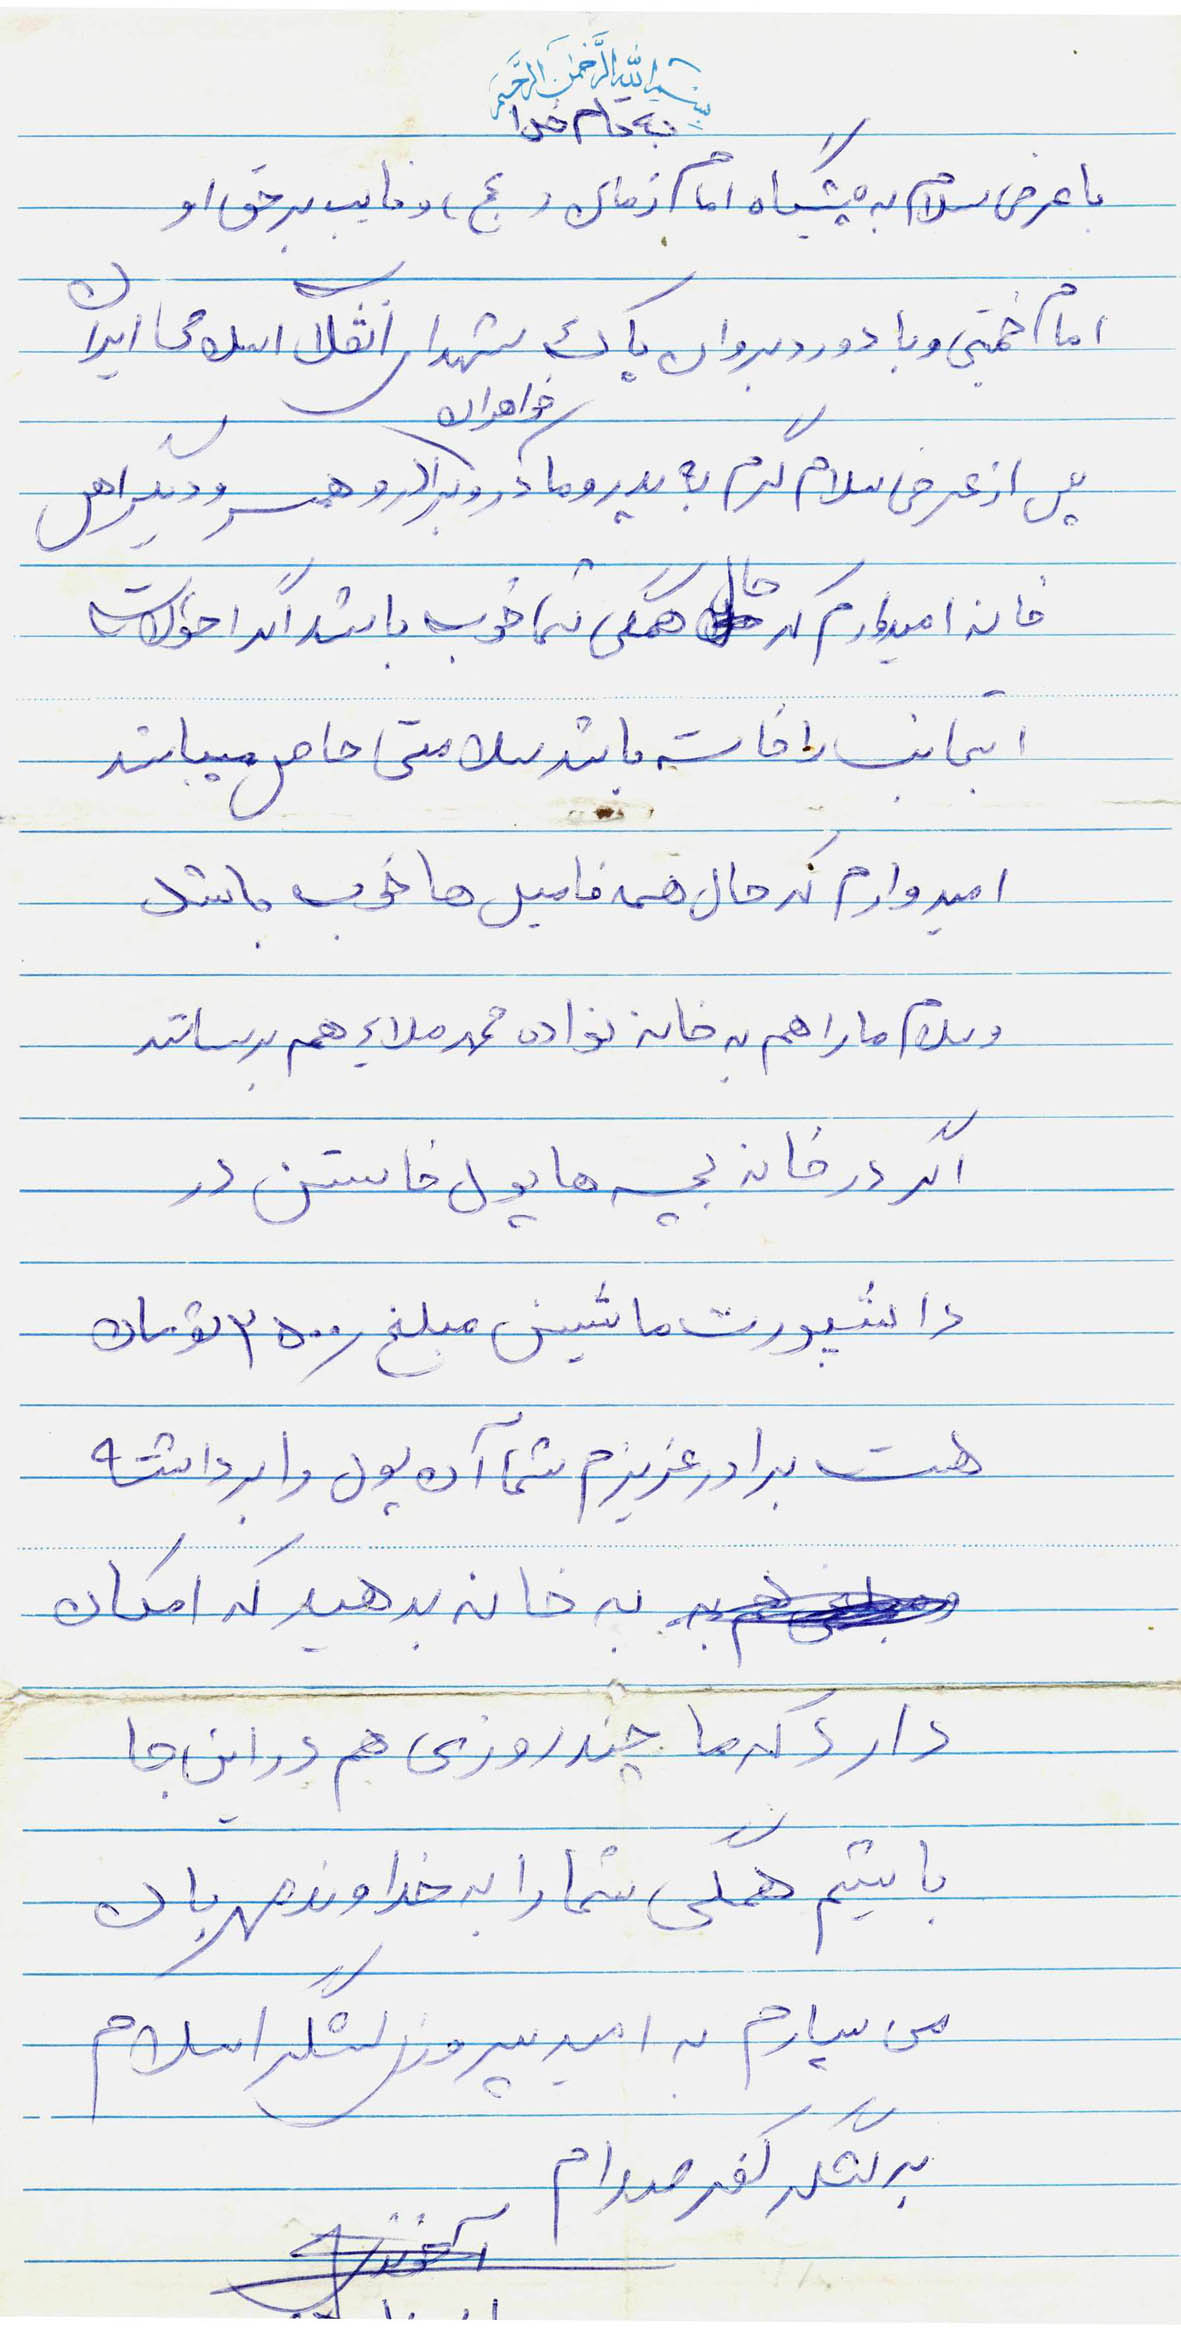 بسم الله الرحمن الرحیم
به نام خدا
با عرض سلام به پیشگاه امام زمان (عج) و نایب بر حق او
امام خمینی و با دورد بروان پاک شهدای انقلاب اسلامی ایران
خواهران
پس از عرض سلام گرم به پدر و مادر و برادر و همسر و دیگر اهل
خانه امیدوارم که حال همگی شما خوب باشد اگر احوالات
اینجانب را خاسته باشد سلامتی حاصل میباشد
امیدوارم که حال همه فامیل ها خوب باشد
و سلام ما را هم به خانه نواده محمد ملای هم برسانند
اگر در خانه بچه ها پول خاستن در
داشپورت ماشین مبلغ ۳۵۰۰ تومان
هست برادر عزیزم شما آن پول را برداشته
به خانه بدهید که امکان
دارد که ما چند روزی هم در این جا
باشیم همگی شما را به خداوند مهربان
می سپارم به امید پیروزی لشگر اسلام
بر لشگر کفر صدام